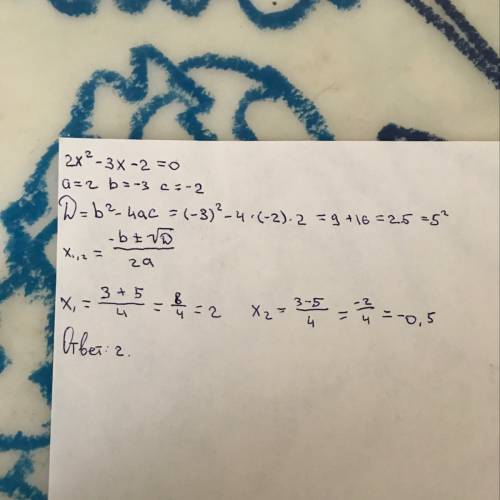 2x² - 3x - 2 = 0
a = 2 b = -3 c = -2
D = b² - 4ac = (-3)² - 4 · (-2) · 2 = 9 + 16 = 25 = 5²
x₁,₂ = (-b ± √D) / 2a
x₁ = (3 + 5) / 4 = 8/4 = 2 x₂ = (3 - 5) / 4 = -2/4 = -0,5
Ответ: 2.